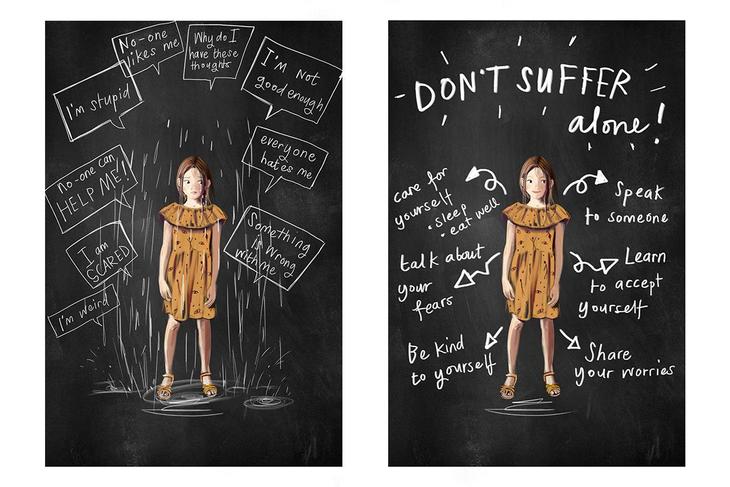 No-one
likes me
Why do I
have these
thoughts
I'm not
good enough
I'm stupid
everyone
hates me
no-one can
HELP ME!
Something
is wrong
with me
I am
SCARED
I'm weird
DON'T SUFFER
alone!
care for
yourself
• sleep
• eat well
Speak
to someone
talk about
your
fears
Learn
to accept
yourself
Be kind
to yourself
Share
your worries